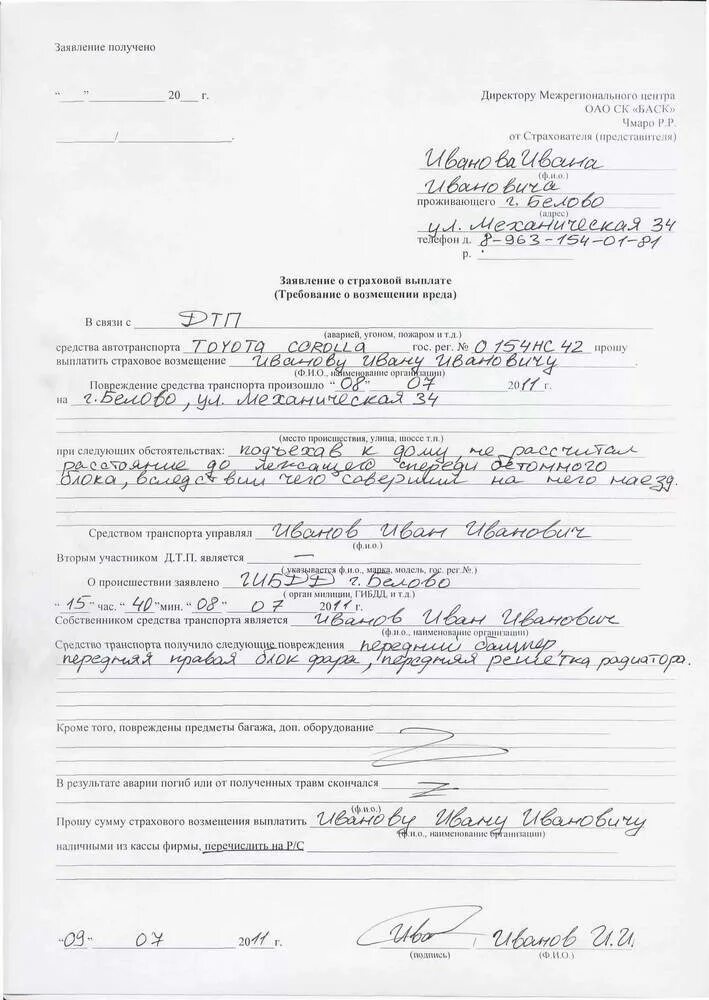 Заявление получено
"___"____________ 20___ г.
Директору Межрегионального центра
ОАО СК «БАСК»
Чмаро Р.Р.
_________/_________________.
от Страхователя (представителя)
Иванова Ивана
(ф.и.о.)
Ивановича
проживающего г. Белово
(адрес)
ул. Механическая 34
телефон д. 8-963-154-01-81
р.
Заявление о страховой выплате
(Требование о возмещении вреда)
В связи с ДТП
(аварией, угоном, пожаром и т.д.)
средства автотранспорта TOYOTA COROLLA гос. рег. № О 154 НС 42 прошу
выплатить страховое возмещение Иванову Ивану Ивановичу
(Ф.И.О., наименование организации)
Повреждение средства транспорта произошло "08" 07 2011 г.
на г. Белово, ул. Механическая 34
(место происшествия, улица, шоссе т.п.)
при следующих обстоятельствах: подъехав к дому, не рассчитал
расстояние до лежащего спереди бетонного
блока, вследствии чего совершил на него наезд.
Средством транспорта управлял Иванов Иван Иванович
(ф.и.о.)
Вторым участником Д.Т.П. является —
( указывается ф.и.о., марка, модель, гос. рег.№.)
О происшествии заявлено ГИБДД г. Белово
( орган милиции, ГИБДД, и т.д.)
"15" час. "40" мин. "08" 07 2011 г.
Собственником средства транспорта является Иванов Иван Иванович
(ф.и.о., наименование организации)
Средство транспорта получило следующие повреждения передний бампер,
передняя правая блок фара, передняя решетка радиатора.
Кроме того, повреждены предметы багажа, доп. оборудование
В результате аварии погиб или от полученных травм скончался
(ф.и.о.)
Прошу сумму страхового возмещения выплатить Иванову Ивану Ивановичу
(ф.и.о., наименование организации)
наличными из кассы фирмы, перечислить на Р/С
"09" 07 2011 г. Ива Иванов И.И.
(подпись) (Ф.И.О.)